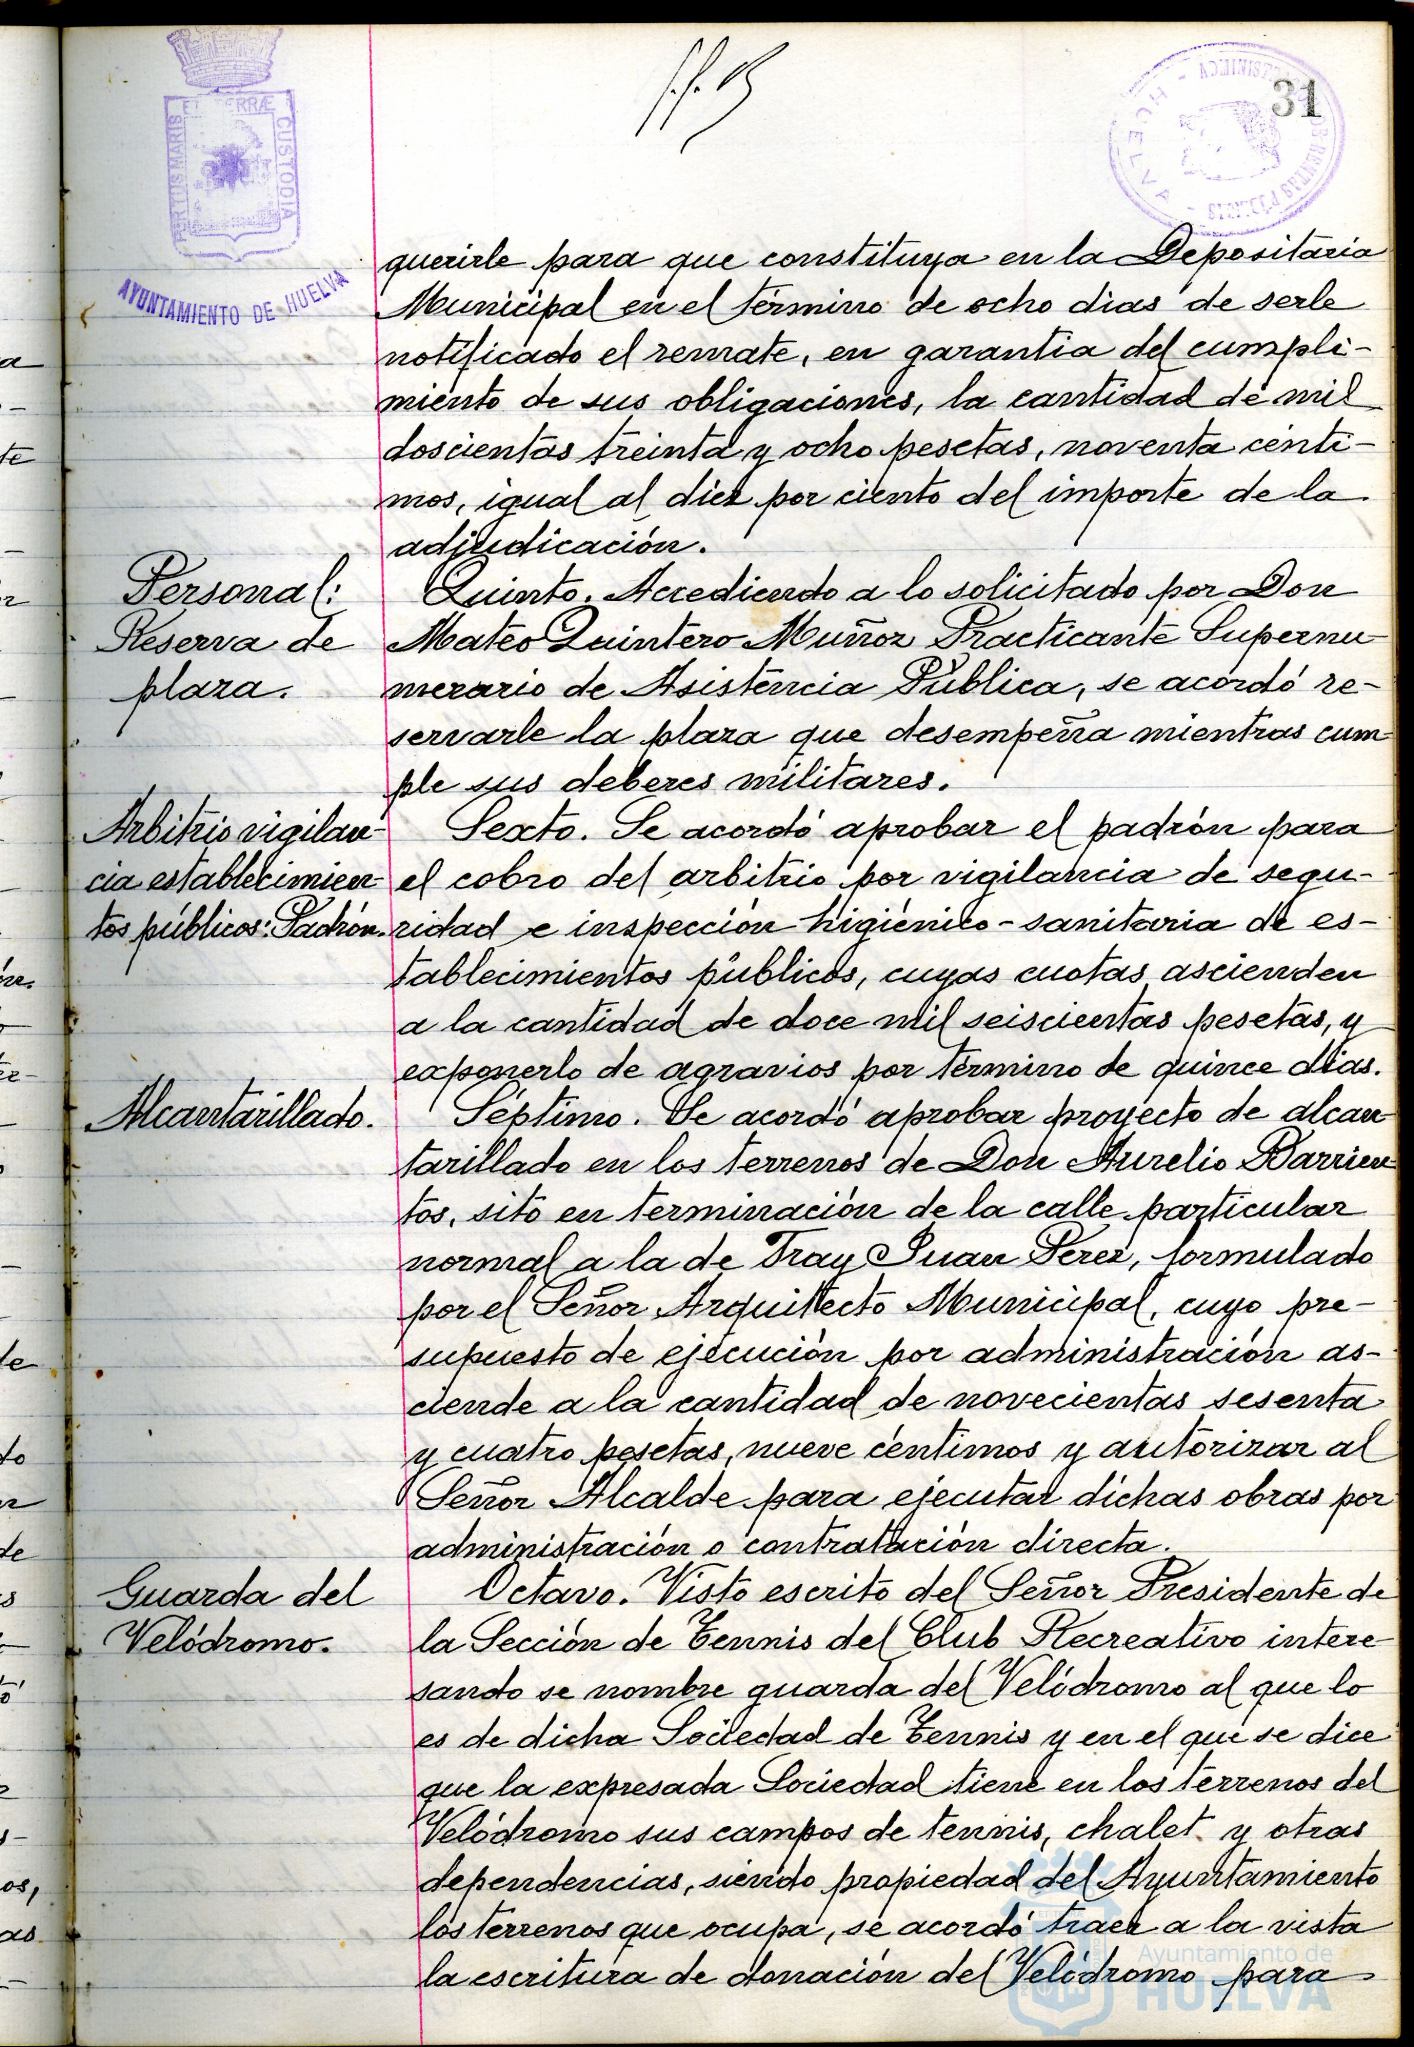 31
PORTUS MARIS ET TERRÆ CUSTODIA
AYUNTAMIENTO DE HUELVA
HUELVA
querirle para que constituya en la Depositaria
Municipal en el término de ocho dias de serle
notificado el remate, en garantia del cumpli-
miento de sus obligaciones, la cantidad de mil
doscientas treinta y ocho pesetas, noventa cénti-
mos, igual al diez por ciento del importe de la
adjudicación.
Personal:
Reserva de
plaza.
Quinto. Accediendo a lo solicitado por Don
Mateo Quintero Muñoz Practicante Supernu-
merario de Asistencia Pública, se acordó re-
servarle la plaza que desempeña mientras cum-
ple sus deberes militares.
Arbitrio vigilan-
cia establecimien-
tos públicos: Padrón.
Sexto. Se acordó aprobar el padrón para
el cobro del arbitrio por vigilancia de segu-
ridad e inspección higiénico-sanitaria de es-
tablecimientos públicos, cuyas cuotas ascienden
a la cantidad de doce mil seiscientas pesetas, y
exponerlo de agravios por término de quince dias.
Alcantarillado.
Séptimo. Se acordó aprobar proyecto de alcan-
tarillado en los terrenos de Don Aurelio Barrien-
tos, sito en terminación de la calle particular
normal a la de Fray Juan Perez, formulado
por el Señor Arquitecto Municipal, cuyo pre-
supuesto de ejecución por administración as-
ciende a la cantidad de novecientas sesenta
y cuatro pesetas, nueve céntimos y autorizar al
Señor Alcalde para ejecutar dichas obras por
administración o contratación directa.
Guarda del
Velódromo.
Octavo. Visto escrito del Señor Presidente de
la Sección de Tennis del Club Recreativo intere-
sando se nombre guarda del Velódromo al que lo
es de dicha Sociedad de Tennis y en el que se dice
que la expresada Sociedad tiene en los terrenos del
Velódromo sus campos de tennis, chalet y otras
dependencias, siendo propiedad del Ayuntamiento
los terrenos que ocupa, se acordó traer a la vista
la escritura de donación del Velódromo para
Ayuntamiento de
HUELVA